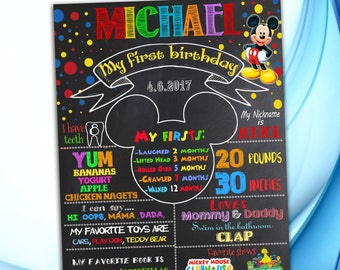 MICHAEL
My first birthday
4.6.2017
I have
8
teeth
My Nickname
is
MY FIRSTS:
-LAUGHED 2 MONTHS
-LIFTED HEAD 3 MONTHS
-ROLLED OVER 5 MONTHS
-CRAWLED 7 MONTHS
-WALKED 12 MONTHS
YUM
BANANAS
YOGURT
APPLE
CHICKEN NAGETS
20 POUNDS
30 INCHES
I can say...
HI, OOPS, MAMA, DADA,
MY FAVORITE TOYS ARE
CARS, PLAY DOH, TEDDY BEAR
LOVES
Mommy & Daddy
Swim in the bathroom
CLAP
MY FAVORITE BOOK IS
Favorite shows
MICKEY MOUSE
CLUBHOUSE